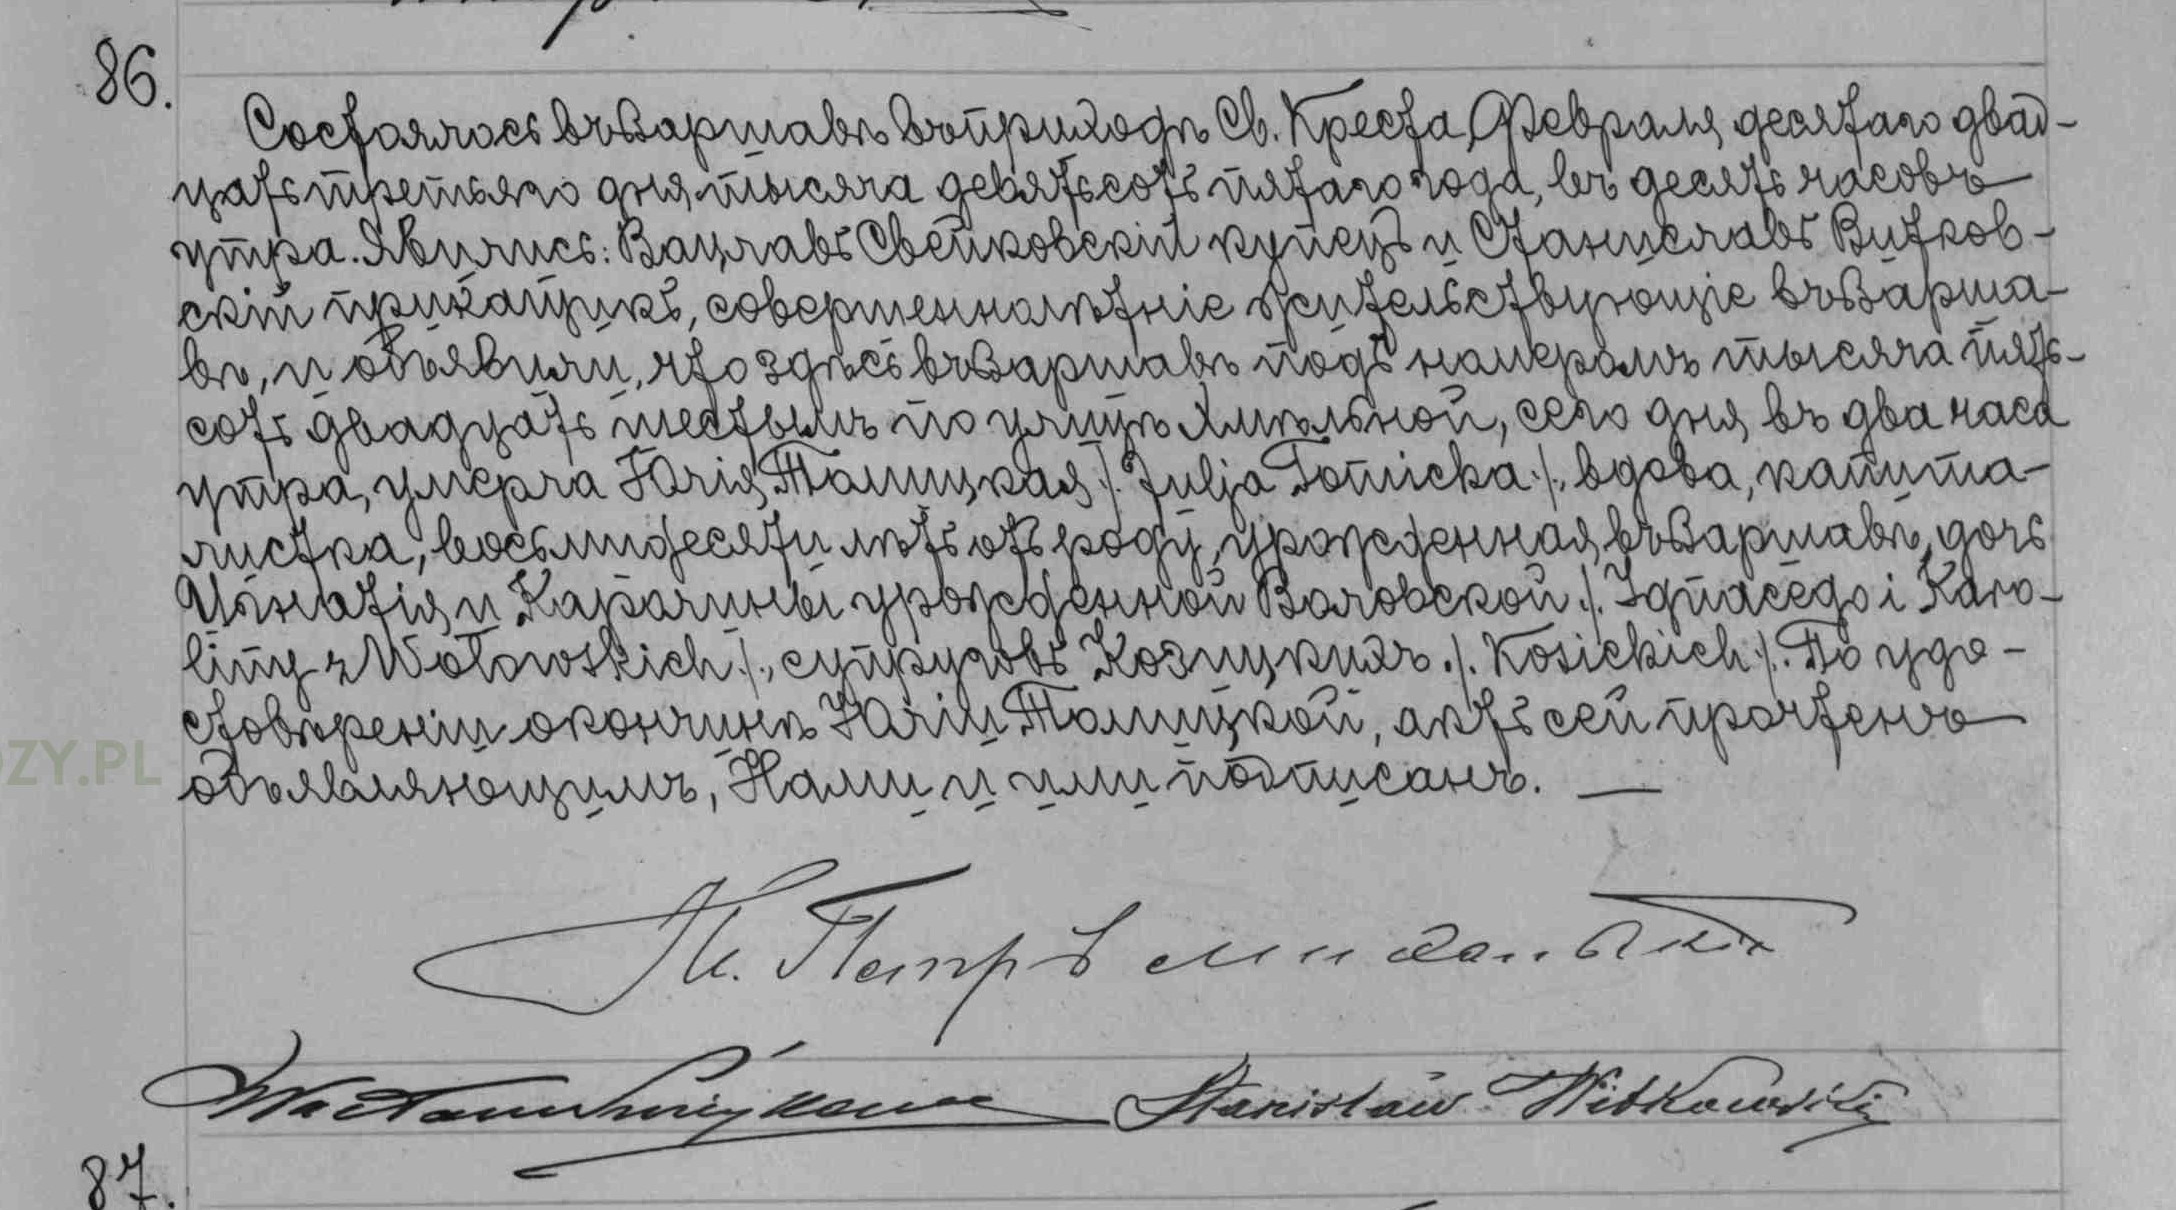 86.
Состоялось въ Варшавѣ въ приходѣ Св. Креста, Февраля десятаго двад-
цать третьяго дня тысяча девятьсотъ пятаго года, въ десять часовъ
утра. Явились: Вацлавъ Свейковскій купецъ и Станиславъ Витков-
скій прикащикъ, совершеннолѣтніе жительствующіе въ Варша-
вѣ, и объявили, что здѣсь въ Варшавѣ подъ номеромъ тысяча пять-
сотъ двадцать шестымъ по улицѣ Хмѣльной, сего дня, въ два часа
утра, умерла Юлія Томицкая /. Julja Tomicka ./, вдова, капита-
листка, восьмидесяти лѣтъ отъ роду, урожденная въ Варшавѣ, дочь
Игнатія и Каролины урожденной Воловской /. Ignacego i Karo-
liny z Wołowskich ./, супруговъ Козицкихъ ./. Kosickich ./. По удо-
стовѣреніи окончинѣ Юліи Томицкой, актъ сей прочтенъ
объявляющимъ, Нами и ими подписанъ. —
Петръ
Wacław Stanisław Witkowski
87.
ZY.PL